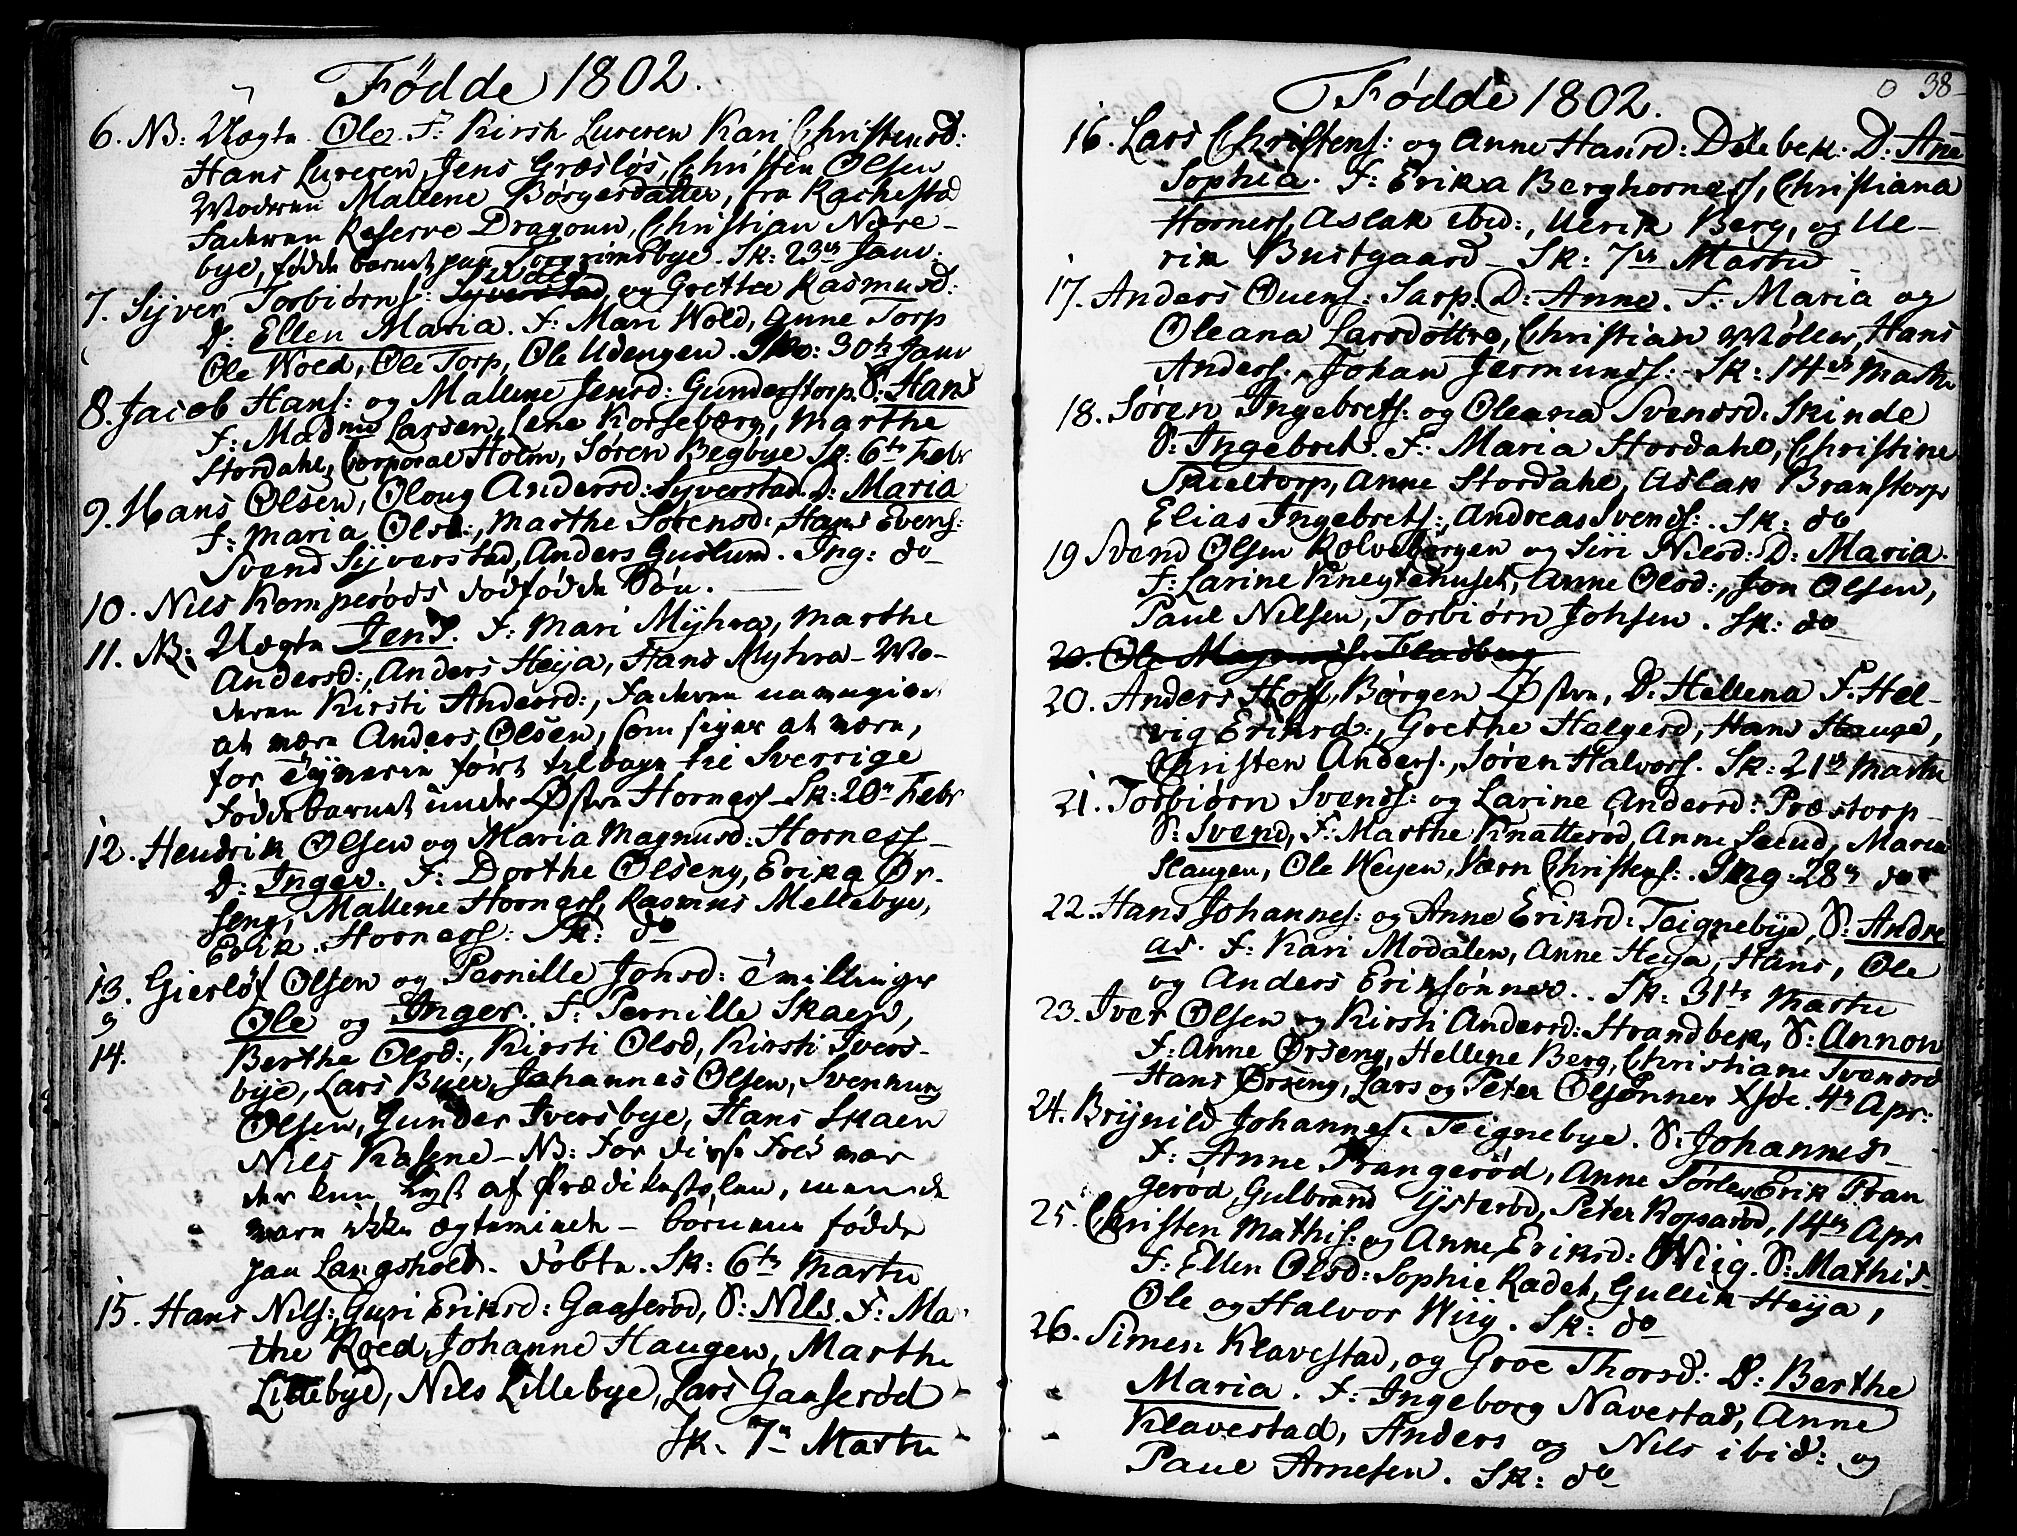 Fødde 1802.
6. NB: Uægte Ole. F: Kirsti Lureren Kari Christensd:
Hans Lureren, Jens Græsløs, Christen Olsen
Moderen Mallene Børgersdatter, fra Rachestad
Faderen Reserve Dragoun, Christian Nore-
bye, fødde barnet paa Torgrimsbye. Sk: 23de Janv:
7. Syver Torbiørns: Syverstad og Grethe Rasmusd:
D: Ellen Maria. F: Mari Wold, Anne Torp
Ole Wold, Ole Torp, Ole Udengen. Sk: 30te Janv
8. Jacob Hans: og Mallene Jensd: Gunderstorp. S: Hans
F: Larsen, Lene Korsebærg, Marthe
Stordahl, Corporal Holm, Søren Begbye Sk: 6te Febr
9. Hans Olsen, Oloug Andersd: Syverstad. D: Maria
F: Maria Olsd:, Marthe Sørensd:, Hans Evens:
Svend Syverstad, Anders Guslund. Ing: do
10. Nils Komperøds dødfødde Søn.
11. NB: Uægte Jens. F: Mari Myhra, Marthe
Andersd:, Anders Heija, Hans Myhra - Mo-
deren Kirsti Andersd:, Faderen
at være Anders Olsen, som siges at være,
for Tyverie ført tilbage til Sverrige
Fødde barnet under Østre Horness - Sk: 20de Febr
12. Hendrik Olsen og Maria Magnusd: Horness -
D: Inger. F: Dorthe Olseng, Erika Ør-
seng, Mallene Horness, Rasmus Mellebye,
Erik Horness: Sk: do
13. Gierløf Olsen og Pernille Jonsd: Tvillinger
og Ole og Inger. F: Pernille Skaen,
14. Berthe Olsd:, Kirsti Olsd, Kirsti Ivers-
bye, Lars Buer, Johannes Olsen, Svennung
Olsen, Gunder Iversbye, Hans Skaen
Nils Kasene - NB: For disse Folk var
der kun Lyst af Prædikestolen, men de
vare ikke ægteviede - børnene fødde
paa Langsholt. døbte. Sk: 6te Martii
15. Hans Nils: Guri Eriksd: Gaaserød, S: Nils. F: Ma-
the Røed, Johanne Haugen, Marthe
Lillebye, Nils Lillebye, Lars Gaaserød
Sk. 7de Martii
38
Fødde 1802.
16. Lars Christens: og Anne Hansd: Delebek. D: Ane
Sophia. F: Erika Berghorness, Christiana
Horness, Aslak ibid:, Ulerik Berg, og Ule-
rik Bustgaard - Sk: 7de Martii
17. Anders Ouens: Sarp. D: Anne. F: Maria og
Oleana Larsdøttre, Christian Møller, Hans
Anders:, Johan Jermunds: - Sk: 14de Martii
18. Søren Ingebrets: og Oleana Svendsd: Skinde
S: Ingebret. F: Maria Stordahl, Christine
Skieltorp, Anne Stordahl, Aslak Branstorp
Elias Ingebrets:, Andreas Svends:. Sk: do
19 Svend Olsen Kolvebørgen og Siri Nilsd: D: Maria.
F: Larine Kneytehuset, Anne Olsd:, Jon Olsen,
Paul Nilsen, Torbiørn Johsen. Sk: do
20. Ole Magnus: Fladberg
20. Anders Hoff, Børgen Østre, D: Hellena F: Hel-
vig Eriksd:, Grethe Helgesd, Hans Hauge,
Christen Anders:, Søren Halvors:. Sk: 21de Martii
21. Torbiørn Svends: og Larine Andersd: Præstorp -
S: Svend, F: Marthe Knatterød, Anne Lund, Maria
Haugen, Ole Weyen, Særn Christens:. Ing: 28de
22. Hans Johannes: og Anne Eriksd: Teignebye, S: Andre
as. F: Kari Modalen, Anne Heya, Hans, Ole
og Anders Eriksønner.. Sk: 31te Martii
23. Iver Olsen og Kirsti Andersd: Strandbek, S: Annon
F: Anne Ørseng, Hellene Berg, Christiane Svendsd
Hans Ørseng, Lars og Peter Olsønner Xsde. 4de Apr:
24. Brynild Johannes: Teignebye. S: Johannes -
F: Anne Prangerød, Anne Tørles, Erik Pran
gerød, Gulbrand Ysterød, Peter Kopaerød, 14de Apr
25. Christen Mathis: og Anne Eriksd: Wiig. S: Mathis -
F: Ellen Olsd: Sophie Radet, Gullik Heija,
Ole og Halvor Wiig. Sk: do
26. Simen Klavestad, og Groe Thorsd: D: Berthe
Maria. F: Ingeborg Navestad, Anne
Klavestad, Anders og Nils ibid: og
Paul Arnesen. Sk: do